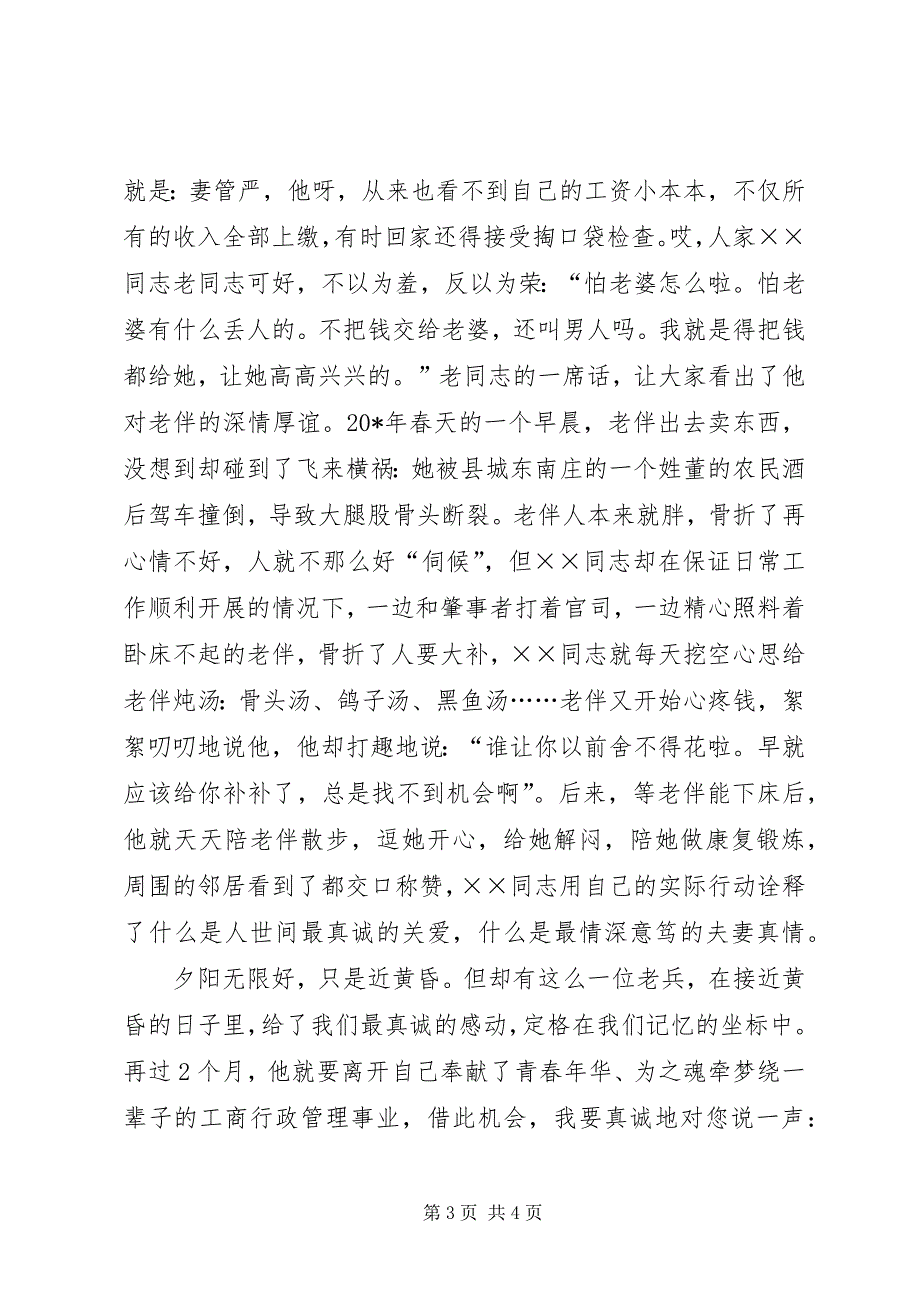 就是：妻管严，他呀，从来也看不到自己的工资小本本，不仅所
有的收入全部上缴，有时回家还得接受掏口袋检查。哎，人家××
同志老同志可好，不以为羞，反以为荣：“怕老婆怎么啦。怕老
婆有什么丢人的。不把钱交给老婆，还叫男人吗。我就是得把钱
都给她，让她高高兴兴的。”老同志的一席话，让大家看出了他
对老伴的深情厚谊。20*年春天的一个早晨，老伴出去卖东西，
没想到却碰到了飞来横祸：她被县城东南庄的一个姓董的农民酒
后驾车撞倒，导致大腿股骨头断裂。老伴人本来就胖，骨折了再
心情不好，人就不那么好“伺候”，但××同志却在保证日常工
作顺利开展的情况下，一边和肇事者打着官司，一边精心照料着
卧床不起的老伴，骨折了人要大补，××同志就每天挖空心思给
老伴炖汤：骨头汤、鸽子汤、黑鱼汤……老伴又开始心疼钱，絮
絮叨叨地说他，他却打趣地说：“谁让你以前舍不得花啦。早就
应该给你补补了，总是找不到机会啊”。后来，等老伴能下床后，
他就天天陪老伴散步，逗她开心，给她解闷，陪她做康复锻炼，
周围的邻居看到了都交口称赞，××同志用自己的实际行动诠释
了什么是人世间最真诚的关爱，什么是最情深意笃的夫妻真情。
夕阳无限好，只是近黄昏。但却有这么一位老兵，在接近黄
昏的日子里，给了我们最真诚的感动，定格在我们记忆的坐标中。
再过 2 个月，他就要离开自己奉献了青春年华、为之魂牵梦绕一
辈子的工商行政管理事业，借此机会，我要真诚地对您说一声：
第 3 页 共 4 页